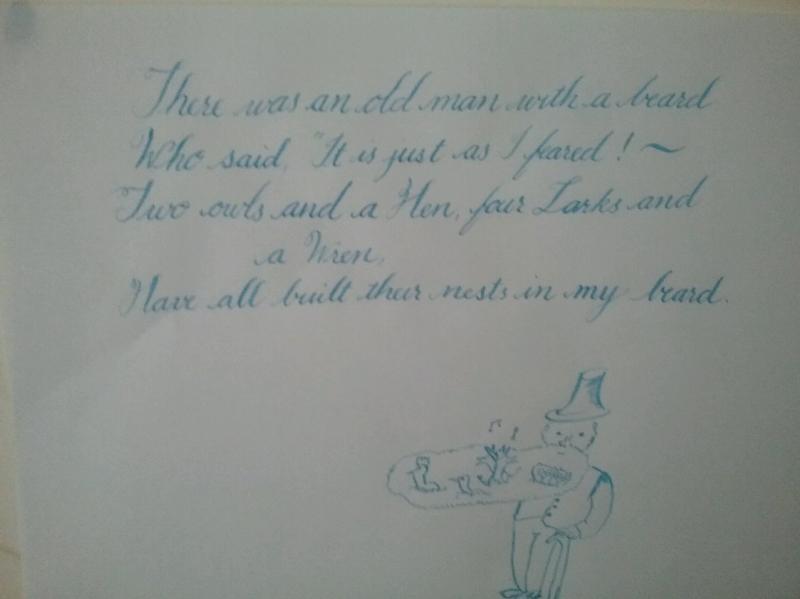 There was an old man with a beard
Who said, "It is just as I feared! ~
Two owls and a Hen, four Larks and
a Wren,
Have all built their nests in my beard.